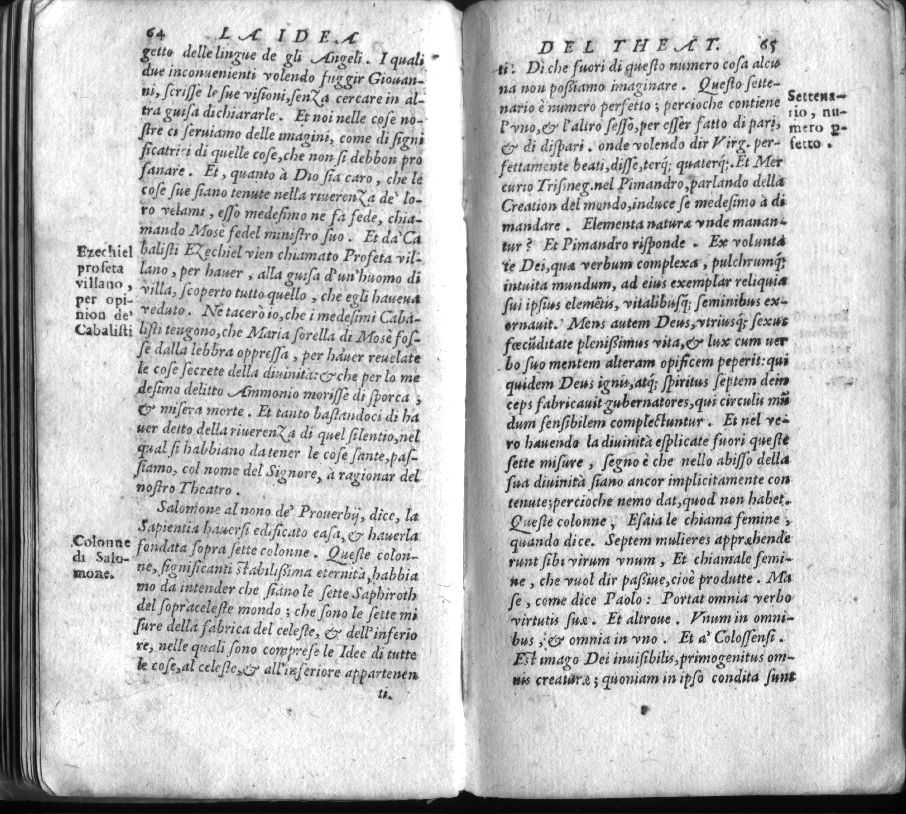 64 LA IDEA
getto delle lingue de gli Angeli. I quali
due inconuenienti volendo fuggir Giouan-
ni, scrisse le sue visioni, senza cercare in al-
tra guisa dichiararle. Et noi nelle cose no-
stre ci seruiamo delle imagini, come di signi
ficatrici di quelle cose, che non si debbon pro
fanare. Et, quanto à Dio sia caro, che le
cose sue siano tenute nella riuerenza de' lo-
ro velami, esso medesimo ne fà fede, chia-
mando Mosè fedel ministro suo. Et da' Ca
balisti Ezechiel vien chiamato Profeta vil-
lano, per hauer, alla guisa d'un'huomo di
villa, scoperto tutto quello, che egli haueua
veduto. Nè tacerò io, che i medesimi Caba-
listi tengono, che Maria sorella di Mosè fos-
se dalla lebbra oppressa, per hauer reuelate
le cose secrete della diuinità: & che per lo me
desimo delitto Ammonio morisse di sporca,
& misera morte. Et tanto bastandoci di ha
uer detto della riuerenza di quel silentio, nel
qual si habbiano da tener le cose sante, pas-
siamo, col nome del Signore, à ragionar del
nostro Theatro.
Salomone al nono de' Prouerbij, dice, la
Sapientia hauersi edificato casa, & hauerla
fondata sopra sette colonne. Queste colon-
ne, significanti stabilissima eternità, habbia
mo da intender che siano le sette Saphiroth
del sopraceleste mondo; che sono le sette mi
sure della fabrica del celeste, & dell'inferio
re, nelle quali sono comprese le Idee di tutte
le cose, al celeste, & all'inferiore appartenen
ti.
Ezechiel
profeta
villano,
per opi-
nion de'
Cabalisti
Colonne
di Salo-
mone.
DEL THEAT. 65
ti. Di che fuori di questo numero cosa alcu
na non possiamo imaginare. Questo sette-
nario è numero perfetto; percioche contiene
l'vno, & l'altro sesso, per esser fatto di pari,
& di dispari. onde volendo dir Virg. per-
fettamente beati, disse, terq; quaterq;. Et Mer
curio Trismeg. nel Pimandro, parlando della
Creation del mondo, induce se medesimo à di
mandare. Elementa naturæ vnde manan-
tur? Et Pimandro risponde. Ex volunta
te Dei, quæ verbum complexa, pulchrumq;
intuita mundum, ad eius exemplar reliquia
sui ipsius elemētis, vitalibusq; seminibus ex-
ornauit. Mens autem Deus, vtriusq; sexus
fœcūditate plenissimus vita, & lux cum ver
bo suo mentem alteram opificem peperit: qui
quidem Deus ignis, atq; spiritus septem dein
ceps fabricauit gubernatores, qui circulu mū
dum sensibilem complectuntur. Et nel ve-
ro hauendo la diuinità esplicate fuori queste
sette misure, segno è che nello abisso della
sua diuinità siano ancor implicitamente con
tenute; percioche nemo dat, quod non habet.
Queste colonne, Esaia le chiama femine,
quando dice. Septem mulieres appræhende
runt sibi virum vnum, Et chiamale femi-
ne, che vuol dir passiue, cioè produtte. Ma
se, come dice Paolo: Portat omnia verbo
virtutis suæ. Et altroue. Vnum in omni-
bus, & omnia in vno. Et a' Colossensi.
Est imago Dei inuisibilis, primogenitus om-
nis creaturæ; quoniam in ipso condita sunt
Settena-
rio, nu-
mero p-
fetto.